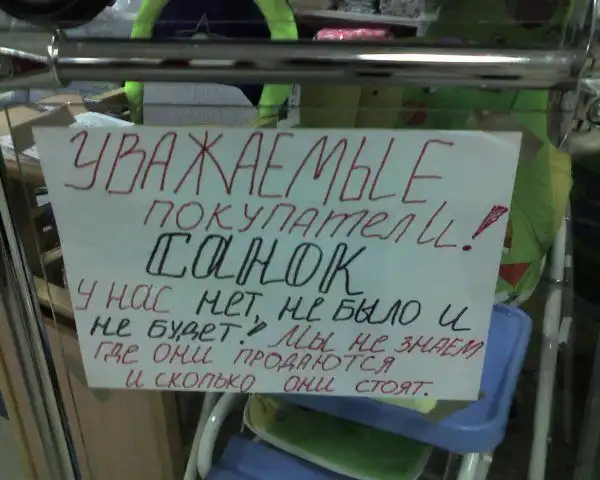 УВАЖАЕМЫЕ
ПОКУПАТЕЛИ!
САНОК
У НАС НЕТ, НЕ БЫЛО И
НЕ БУДЕТ! МЫ НЕ ЗНАЕМ
ГДЕ ОНИ ПРОДАЮТСЯ
И СКОЛЬКО ОНИ СТОЯТ.